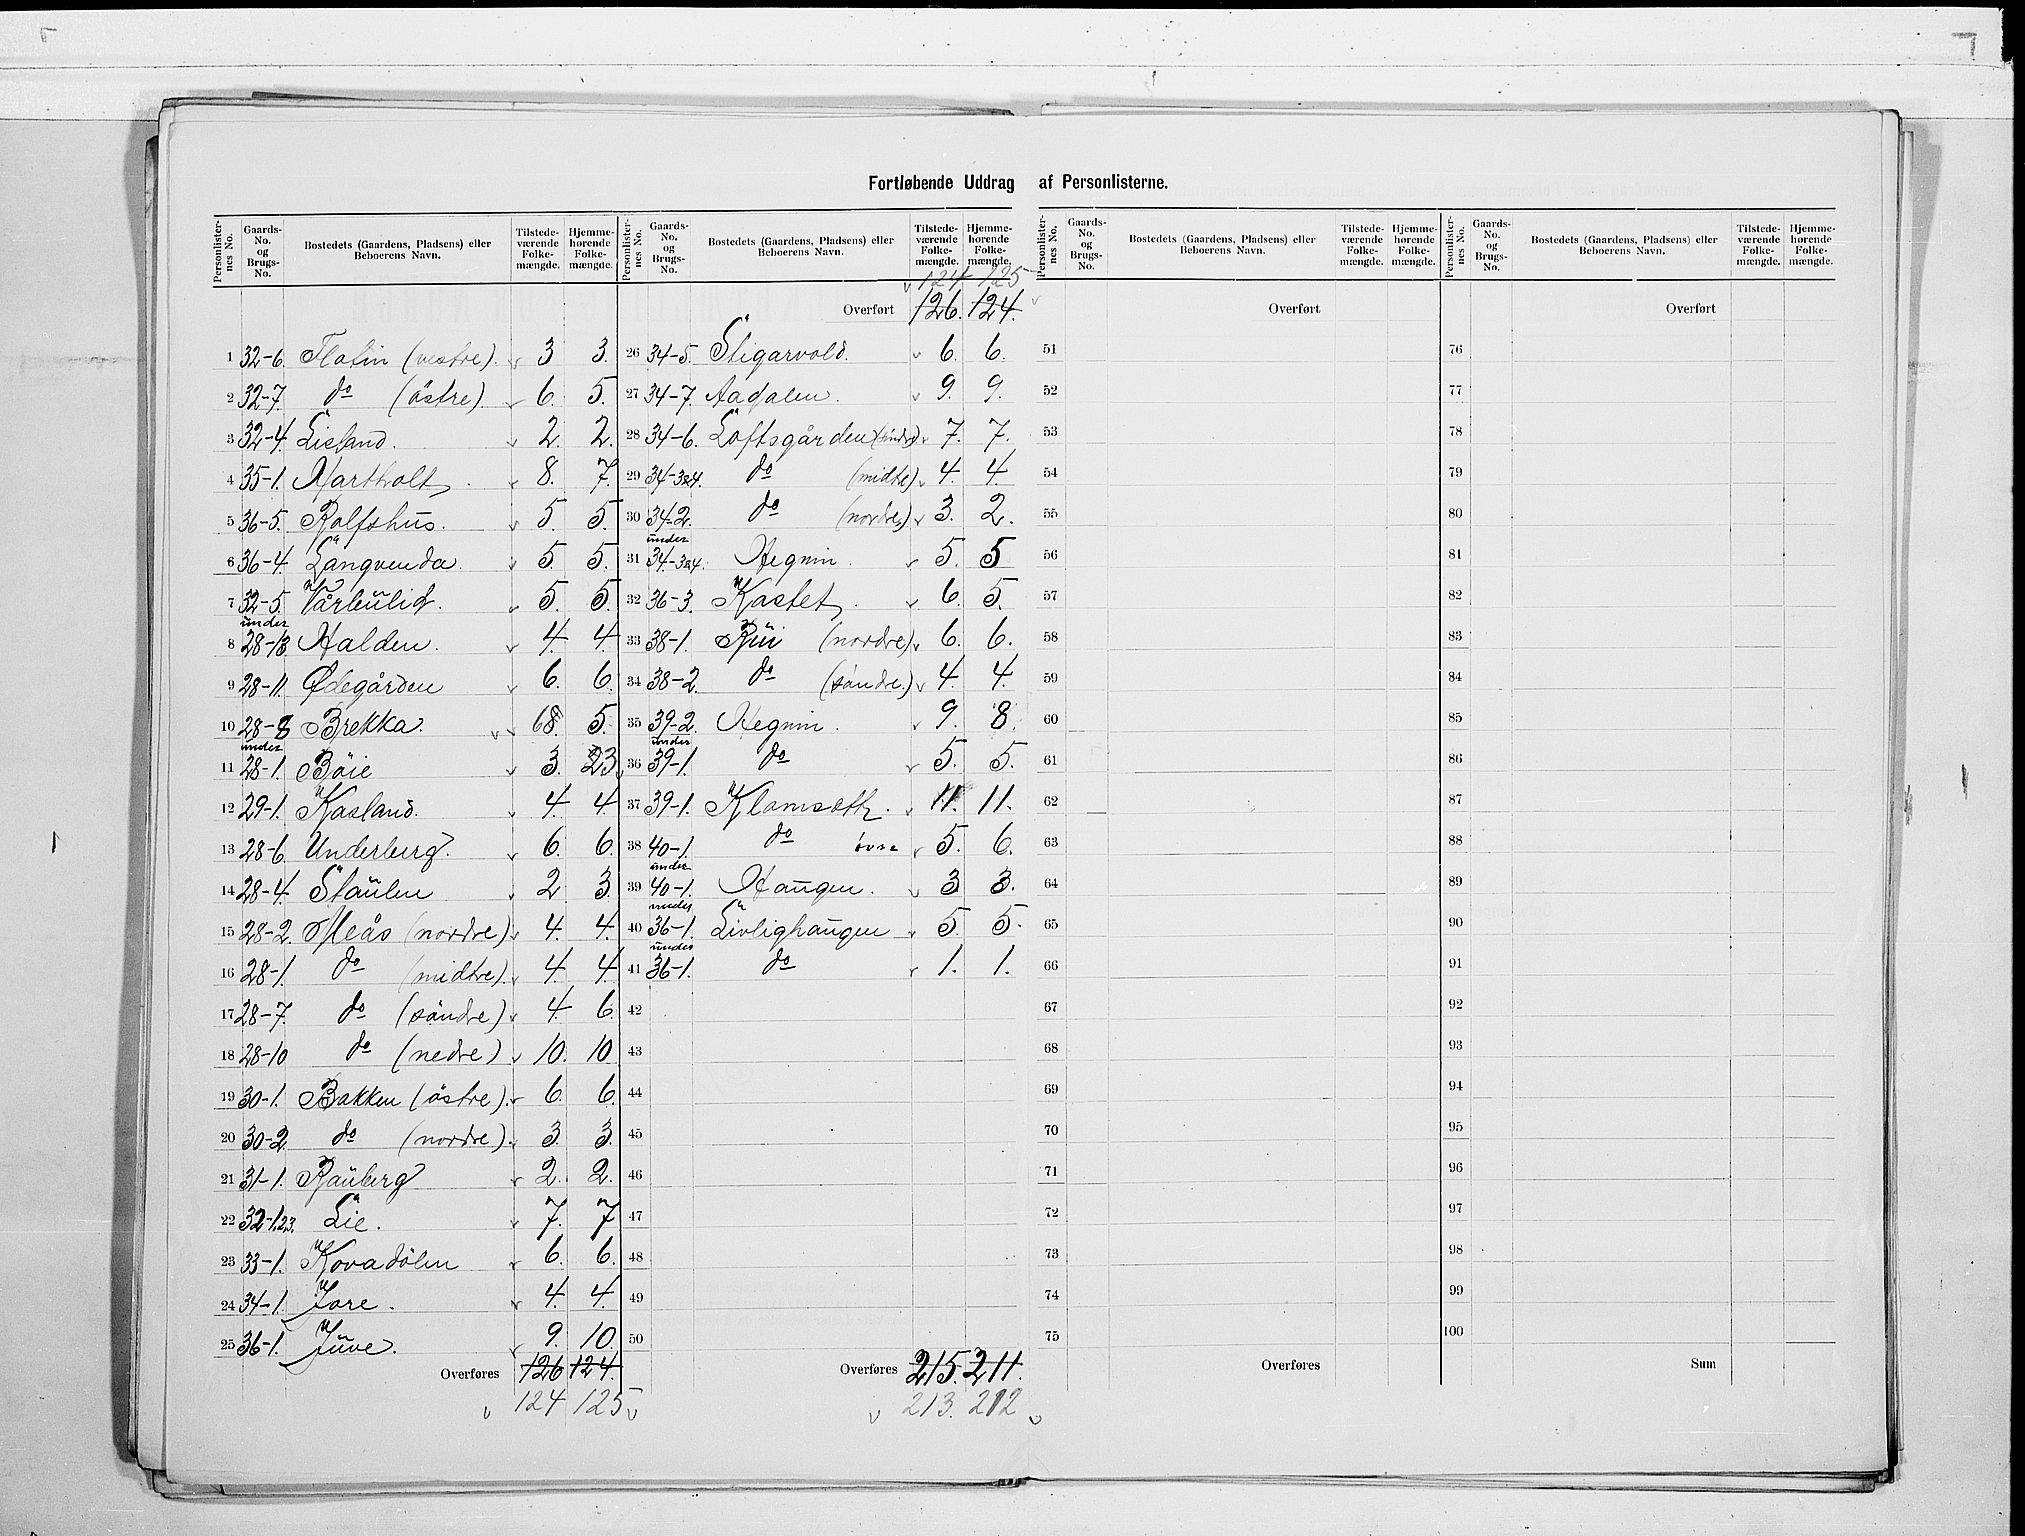 Fortløbende Uddrag af Personlisterne.
Personlister-nes No. | Gaards-No. og Brugs-No. | Bostedets (Gaardens, Pladsens) eller Beboerens Navn. | Tilstede-værende Folke-mængde. | Hjemme-hørende Folke-mængde.
1 32-6. Flatin (vestre). 3 3.
2 32-7. do (östre). 6. 5.
3 32-4. Lisland. 2. 2.
4 35-1. Martholt. 8. 7.
5 36-5. Rolfshus. 5. 5.
6 36-4. Långvenda. 5. 5.
7 32-5. Vårkulid. 5. 5.
8 under 28-13 Halden. 4. 4.
9 28-11. Ødegården 6. 6.
10 28-8 Brekka. 68. 5.
11 under 28-1. Böie 3. 23
12 29-1. Kasland. 4. 4.
13 28-6. Underberg. 6. 6.
14 28-4. Staulen 2 3.
15 28-2. Meås (nordre) 4. 4.
16 28-1. do (midtre). 4. 4.
17 28-7. do (söndre) 4. 6.
18 28-10 do (nedre) 10. 10.
19 30-1. Bakken (östre). 6. 6.
20 30-2 do (nordre). 3. 3.
21 31-1. Rauberg 2. 2.
22 32-1,2,3. Lie. 7. 7
23 33-1. Kovadölen 6. 6.
24 34-1. Jore. 4. 4.
25 36-1. Juve. 9. 10.
Overføres 126 124.
124 125
Personlister-nes No. | Gaards-No. og Brugs-No. | Bostedets (Gaardens, Pladsens) eller Beboerens Navn. | Tilstede-værende Folke-mængde. | Hjemme-hørende Folke-mængde.
124 125
Overført 126. 124.
26 34-5. Stigarvold. 6. 6.
27 34-7. Aagalen. 9. 9.
28 34-6. Loftsgården (söndre) 7. 7.
29 34-3&4. do (midte) 4. 4.
30 34-2. do (nordre) 3. 2.
31 under 34-3&4. Hegnin. 5. 5
32 36-3. Kastet. 6. 5.
33 38-1. Rui (nordre) 6. 6.
34 38-2. do (söndre.) 4. 4.
35 39-2. Hegnin. 9. 8.
36 under 39-1. do 5. 5.
37 39-1. Klomseth. 11. 11.
38 40-1. do övre 5. 6.
39 under 40-1. Haugen. 3 3.
40 under 36-1. Livlighaugen 5. 5.
41 under 36-1. do 1. 1.
42
43
44
45
46
47
48
49
50
Overføres 215. 211.
213. 212
Personlister-nes No. | Gaards-No. og Brugs-No. | Bostedets (Gaardens, Pladsens) eller Beboerens Navn. | Tilstede-værende Folke-mængde. | Hjemme-hørende Folke-mængde.
Overført
51
52
53
54
55
56
57
58
59
60
61
62
63
64
65
66
67
68
69
70
71
72
73
74
75
Overføres
Personlister-nes No. | Gaards-No. og Brugs-No. | Bostedets (Gaardens, Pladsens) eller Beboerens Navn. | Tilstede-værende Folke-mængde. | Hjemme-hørende Folke-mængde.
Overført
76
77
78
79
80
81
82
83
84
85
86
87
88
89
90
91
92
93
94
95
96
97
98
99
100
Sum